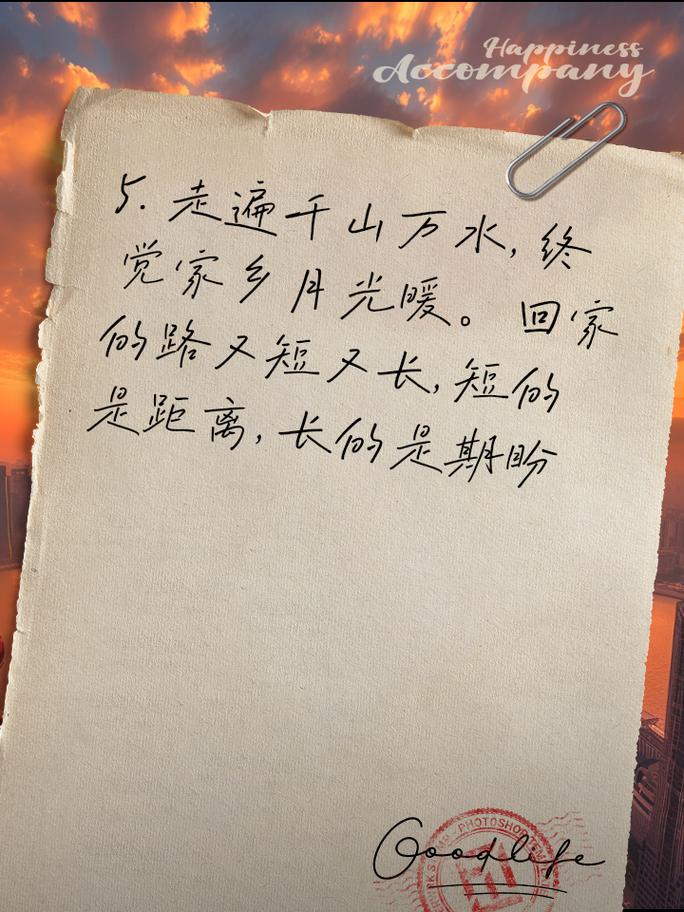 Happiness
Accompany
5. 走遍千山万水,终
觉家乡月光暖。回家
的路又短又长,短的
是距离,长的是期盼
Goodlife
PHOTOSHOP